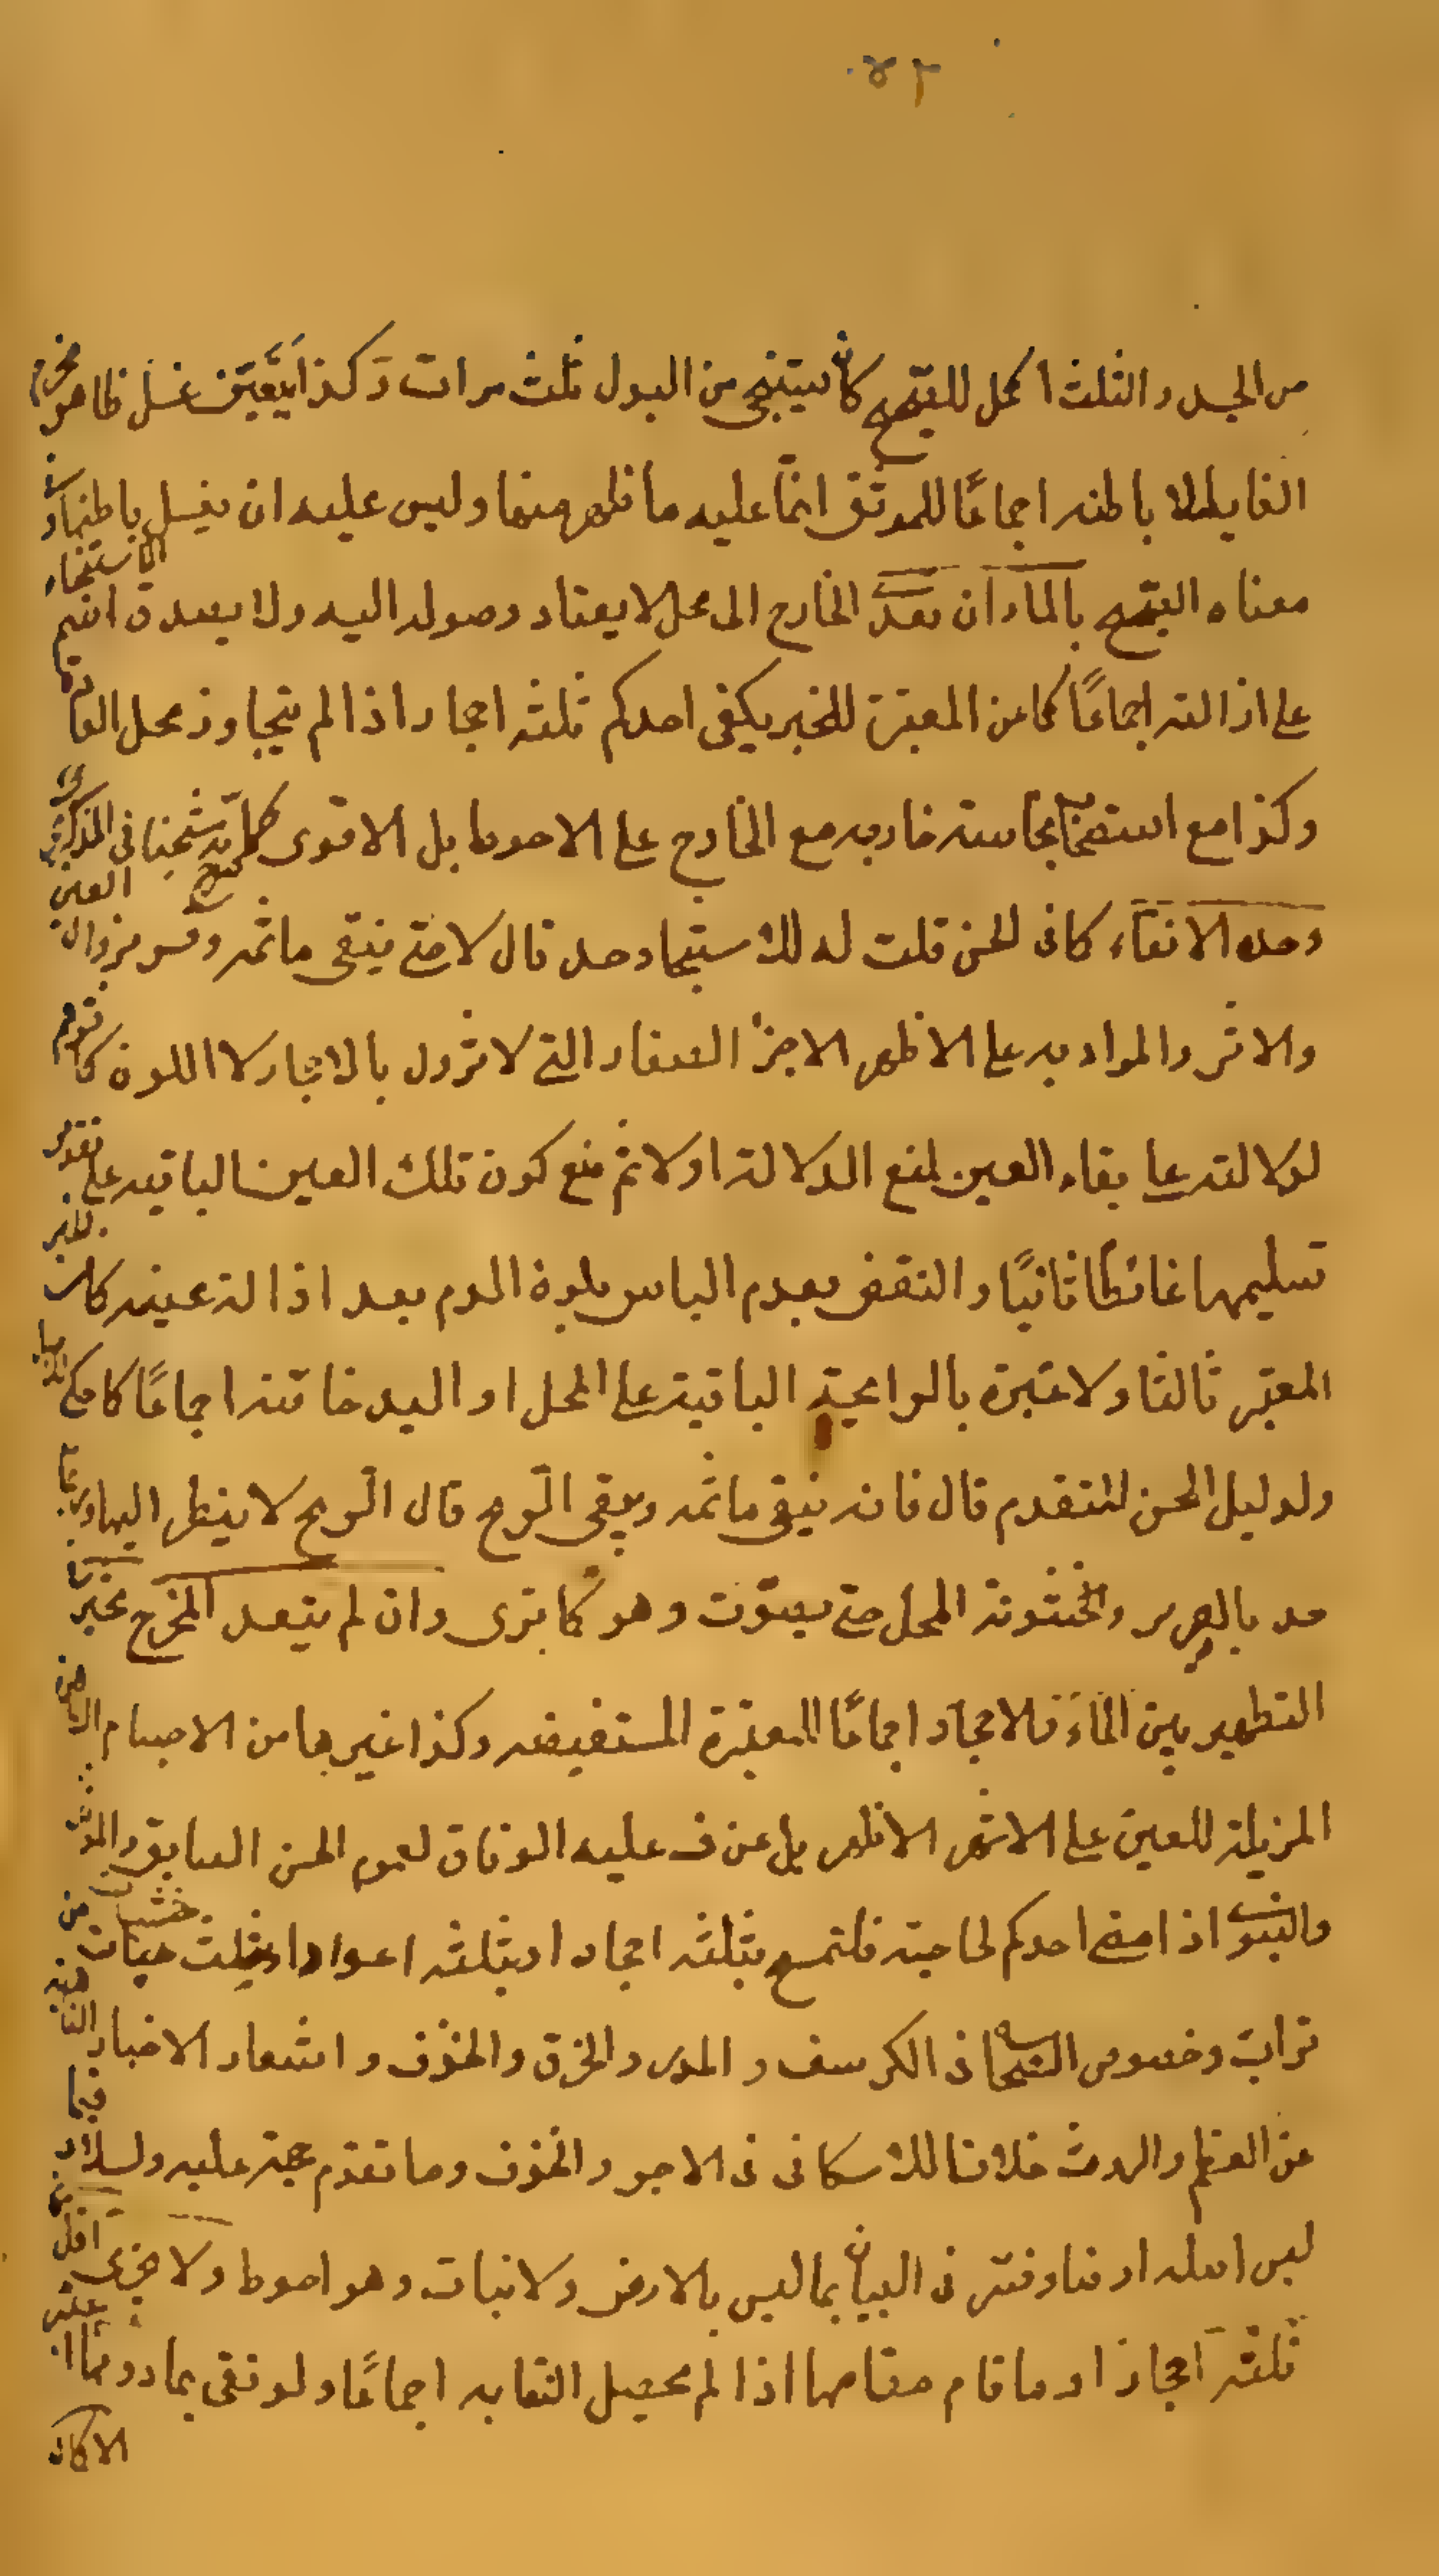 من الجسد والثلث اكمل للصحيح كان يستنجى من البول ثلث مرات وكذا يتعين غسل ظاهر مخرج
الغايط لا باطنه اجماعًا للموثق انما عليه ما ظهر منها وليس عليه ان يغسل باطنها و
معناه الصحيح بالماء ان تعدى الخارج الى محل لا يعتاد وصوله اليه ولا يصدق اسم الاستنجاء
على ازالته اجماعًا كما عن المعتبر للخبر يكفى احدكم ثلثه احجار اذا لم يتجاوز محل العادة
وكذا مع استصحاب نجاسته خارجه مع الخارج على الاحوط بل الاقوى كما صرح به شيخنا فى الذكرى
وحده الانقاء كما فى الحسن قلت له للاستنجاء حد قال لا حتى ينقى ما ثمه وفسر بزوال العين
والاثر والمراد به على الاظهر الاجزاء الصغار التى لا تزول بالاحجار لا اللون كما توهم
لدلالته على بقاء العين لمنع الدلالة اولا ثم منع كون تلك العين الباقيه على تقدير
تسليمها غائطا ثانيًا والنقض بعدم الباس بلون الدم بعد ازالة عينه كما فى الخبر
المعتبر ثالثا ولا عبرة بالرايحة الباقية على المحل او اليد خاتمته اجماعًا كما حكى
ولدليل الحسن المتقدم قال فانه ينقى ما ثمه ويبقى الريح قال الريح لا ينظر اليها وربما
حد بالصرير وخشونة المحل حتى يصوت وهو كما ترى وان لم يتعد المخرج تخير
التطهير بين الماء والاحجار اجماعًا للمعتبرة المستفيضه وكذا غيرها من الاجسام الطاهرة
المزيلة للعين على الاشهر الاظهر بل عن ف عليه الوفاق لعموم الحسن السابق والموثق
والنبوى اذا مضى احدكم لحاجته فليتمسح بثلثه احجار او بثلثه اعواد او بثلث حثيات من
تراب وخصوص الصحاح فى الكرسف والمدر والخرق والخزف واشعار الاخبار الناهية
عن العظم والروث خلافا للاسكافى فى الاجر والخزف وما تقدم حجة عليه ولسلار فيما
ليس اصله ارضا وفسر فى البيان بما ليس بالارض ولا نبات وهو احوط ولا يجزى اقل من
ثلثه احجار او ما قام مقامها اذا لم يحصل النقا به اجماعًا ولو نقى بما دونها